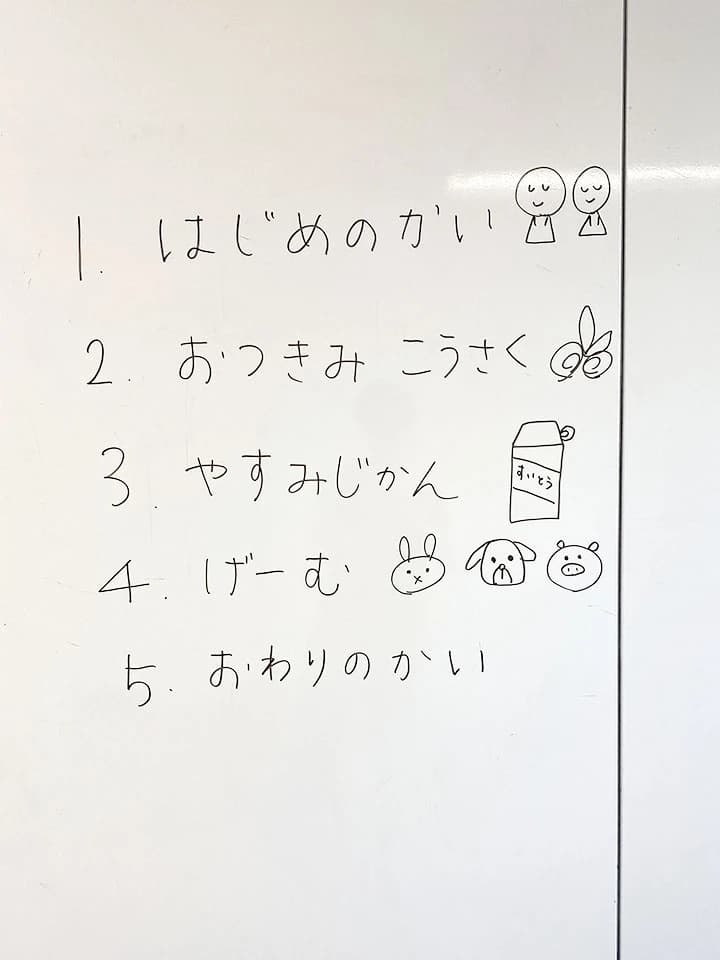 1. はじめのかい
2. おつきみ こうさく
3. やすみじかん
すいとう
4. げーむ
5. おわりのかい